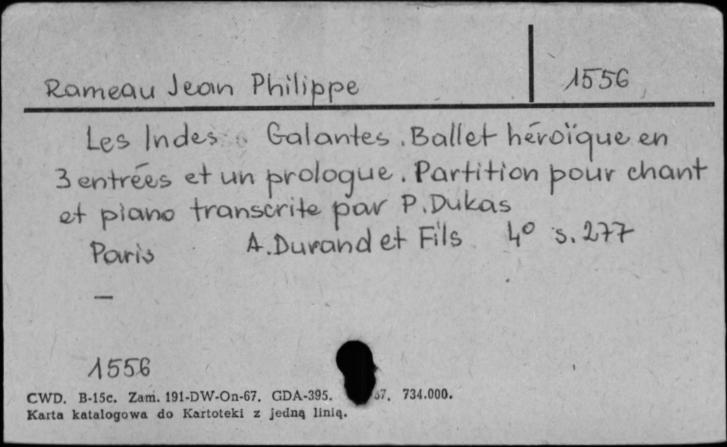 Rameau Jean Philippe 1556
Les Indes Galantes. Ballet héroïque en
3 entrées et un prologue. Partition pour chant
et piano transcrite par P. Dukas
Paris A. Durand et Fils 4° s. 277
—
1556
CWD. B-15c. Zam. 191-DW-On-67. GDA-395. 67. 734.000.
Karta katalogowa do Kartoteki z jedną linią.